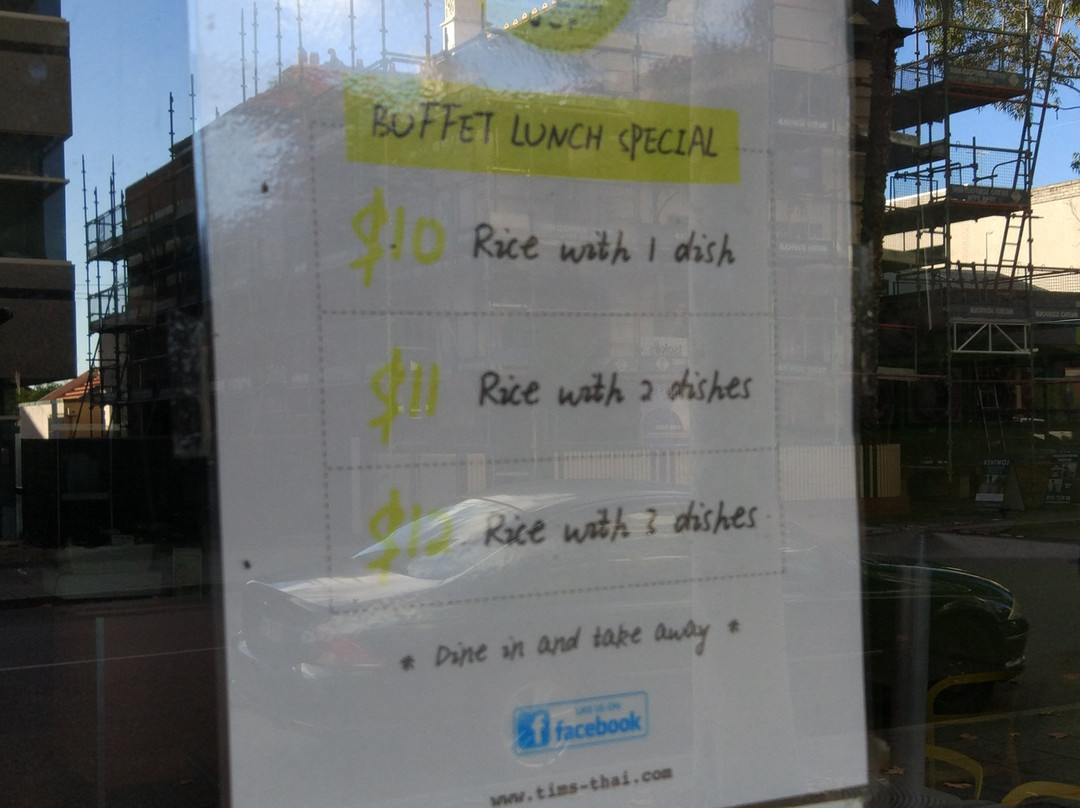 BUFFET LUNCH SPECIAL
$10 Rice with 1 dish
$11 Rice with 2 dishes
$12 Rice with 3 dishes
* Dine in and take away *
LIKE US ON
facebook
www.tims-thai.com